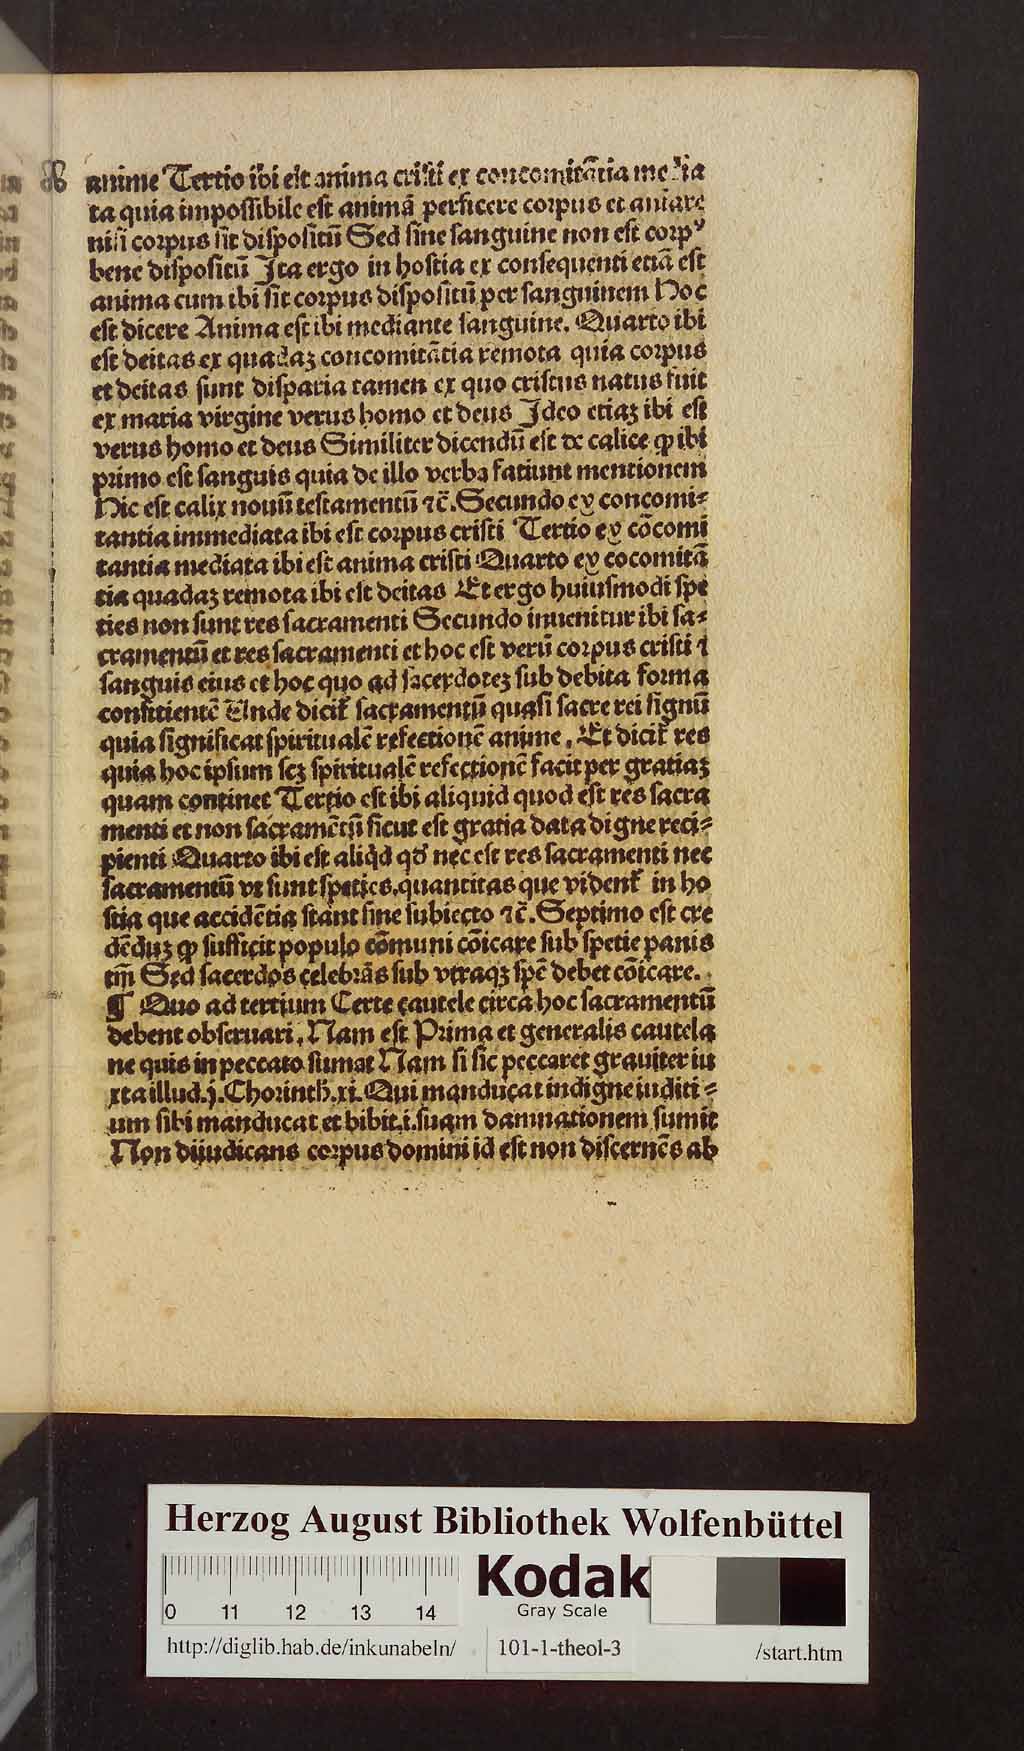 anime Tertio ibi est anima cristi ex concomitātia media
ta quia impossibile est animā perficere corpus et aniare
nisi corpus sit dispositū Sed sine sanguine non est corpꝰ
bene dispositū Ita ergo in hostia ex consequenti etiā est
anima cum ibi sit corpus dispositū per sanguinem Hoc
est dicere Anima est ibi mediante sanguine. Quarto ibi
est deitas ex quadaꝫ concomitātia remota quia corpus
et deitas sunt disparia tamen ex quo cristus natus fuit
ex maria virgine verus homo et deus Ideo etiaꝫ ibi est
verus homo et deus Similiter dicendū est de calice ꝙ ibi
primo est sanguis quia de illo verba fatiunt mentionem
Hic est calix nouū testamentū ⁊c̄. Secundo ex concomi⸗
tantia immediata ibi est corpus cristi Tertio ex cōcomi
tantia mediata ibi est anima cristi Quarto ex cocomitā
tia quadaꝫ remota ibi est deitas Et ergo huiusmodi spe
ties non sunt res sacramenti Secundo inuenitur ibi sa⸗
cramentū et res sacramenti et hoc est verū corpus cristi ⁊
sanguis eius et hoc quo ad sacerdoteꝫ sub debita forma
confitientē Unde dicit̄ sacramentū quasi sacre rei signū
quia significat spiritualē refectionē anime. Et dicit̄ res
quia hoc ipsum scꝫ spiritualē refectionē facit per gratiaꝫ
quam continet Tertio est ibi aliquid quod est res sacra
menti et non sacramētū sicut est gratia data digne reci⸗
pienti Quarto ibi est aliqd qd̄ nec est res sacramenti nec
sacramentū vt sunt speties, quantitas que vident̄ in ho
stia que accidētia stant sine subiecto ⁊c̄. Septimo est cre
dēduꝫ ꝙ sufficit populo cōmuni cōicare sub spetie panis
tm̄ Sed sacerdos celebrās sub vtraqꝫ spē debet cōicare.
¶ Quo ad tertium Certe cautele circa hoc sacramentū
debent obseruari. Nam est Prima et generalis cautela
ne quis in peccato sumat Nam si sic peccaret grauiter iu
xta illud. j. Chorinth̄. xi. Qui manducat indigne iuditi⸗
um sibi manducat et bibit .i. suam damnationem sumit
Non diiudicans corpus domini id est non discernēs ab
Herzog August Bibliothek Wolfenbüttel
0 11 12 13 14
Kodak
Gray Scale
http://diglib.hab.de/inkunabeln/
101-1-theol-3
/start.htm